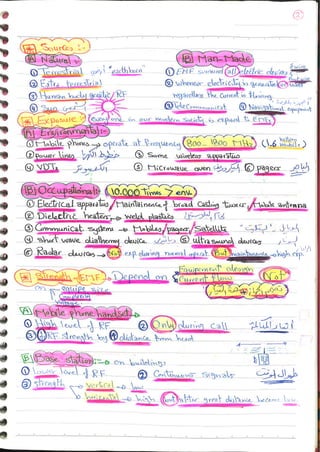 Sources :-
A Natural :-
B Man-Made
① Terrestrial "earthborn"
① EMF surround all electric devices
② Extra terrestrial
② wherever electricity is generated or used
③ Human body genetic / RF
regardless the current is flowing
④ Sun
③ Telecommunicat ④ Navigational equipment
Exposure → everyone in our modern society is exposed to EMFs
A Environmental :-
① Mobile phones → operate at frequency 800 - 1800 MHz
② Power lines
③ Some wireless apparatus
④ VDTs
⑤ Microwave oven ⑥ pagers
B Occupational : 10.000 times > env.
① Electrical apparatus / Maintainance of broad casting tower / Mobile antenna
② Dielectric heaters → weld plastics
③ Communicat systems → Mobiles / pagers / Satellite
④ Short wave diathermy device ⑤ ultrasound devices
⑥ Radar devices → Not exp during normal operat But maintainance → high exp.
Strength → EMF → Depend on
Equipement design
Current flow
Not
equipe size
Complexity
Voltage
A Mobile phone handset :-
① High level of RF ② Only during call
③ RF strength by distance from head
B Base station → on buildings
① Lower level of RF ② Continuous signals
③ strength → vertical → low
→ horizontal → high but after great distance become low